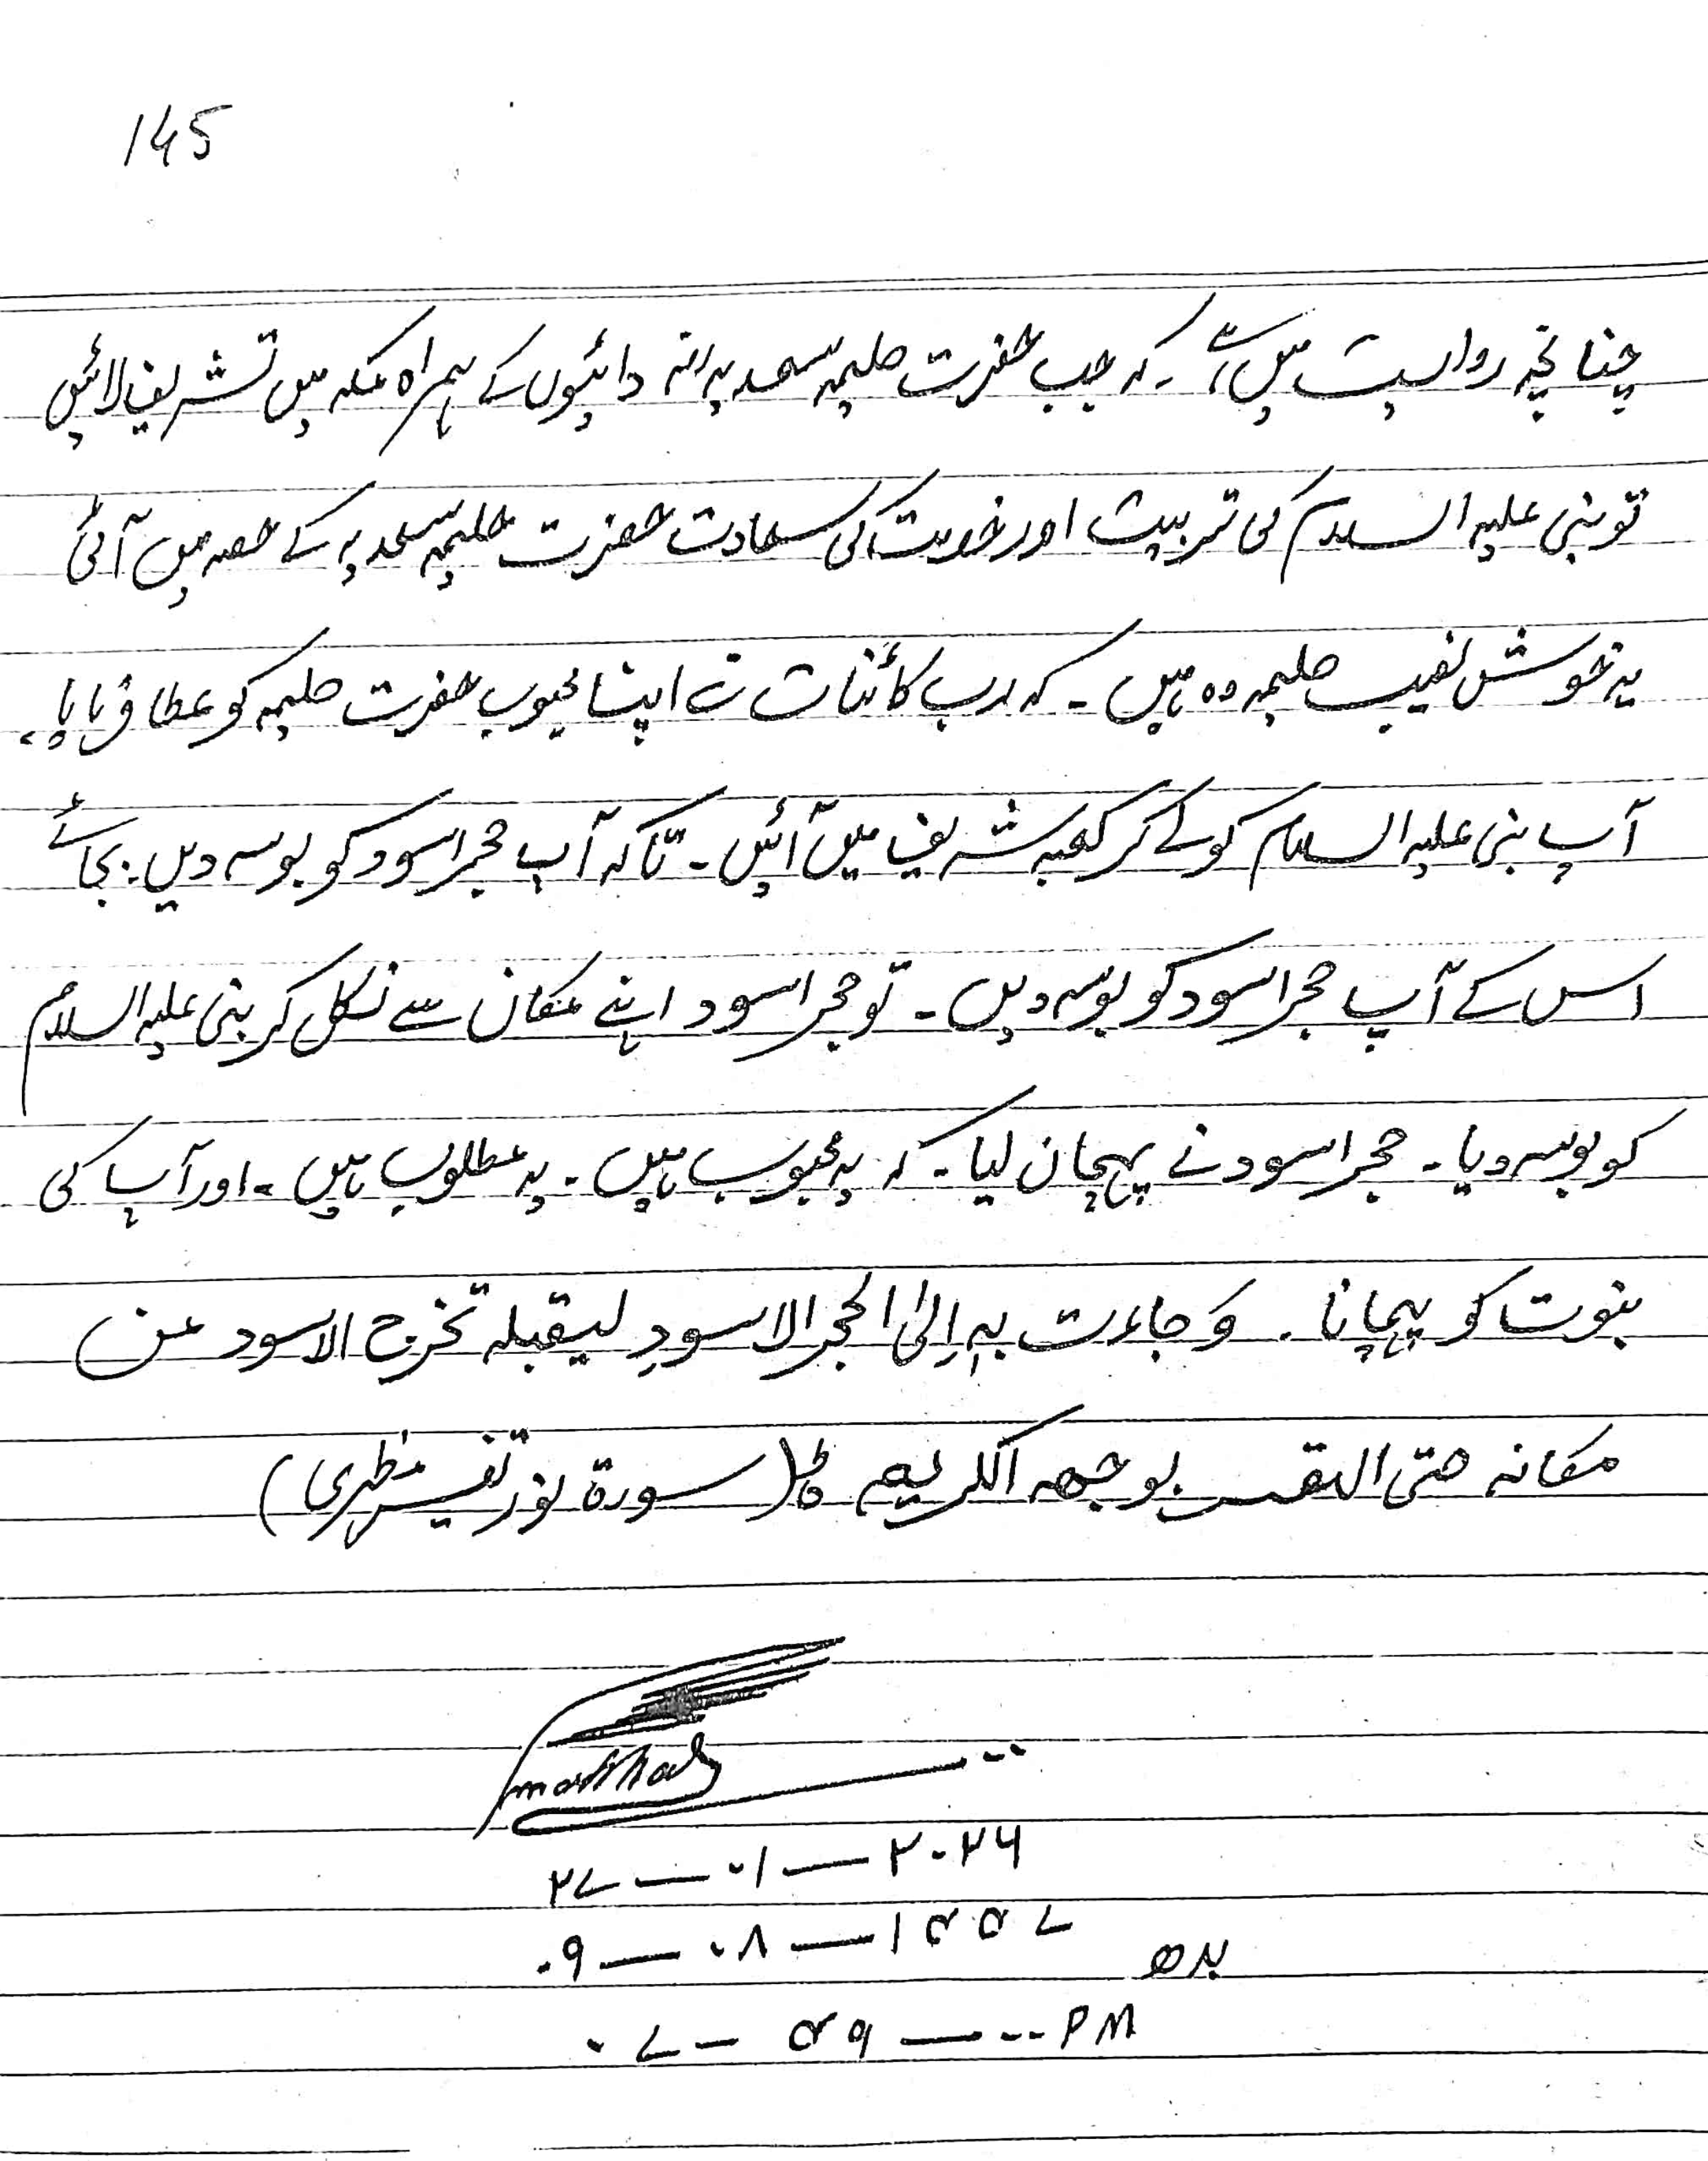 145
چنانچہ روایت میں ہے کہ جب حضرت حلیمہ سعدیہ دائیوں کے ہمراہ مکہ میں تشریف لائیں
تو نبی علیہ السلام کی تربیت اور خدمت کی سعادت حضرت حلیمہ سعدیہ کے حصہ میں آئی
یہ خوش نصیب حلیمہ وہ ہیں ۔ کہ رب کائنات نے اپنا محبوب حضرت حلیمہ کو عطا فرمایا ،
آپ نبی علیہ السلام کو لے کر کعبہ شریف میں آئیں ۔ تاکہ آپ حجر اسود کو بوسہ دیں ۔ بجائے
اس کے آپ حجر اسود کو بوسہ دیں ۔ تو حجر اسود اپنے مکان سے نکل کر نبی علیہ السلام
کو بوسہ دیا ۔ حجر اسود نے پہچان لیا ۔ کہ یہ محبوب ہیں ۔ یہ مطلوب ہیں ۔ اور آپ کی
نبوت کو پہچانا ۔ وَجاءت بہِ اِلیٰ الحجر الاسودِ لیقبلہ تخرج الاسود من
مکانہ حتی التقس بوجھہ الکریم (سورۃ نور تفسیر مظہری)
۲۷ — ۰۱ — ۲۰۲۶
۰۹ — ۰۸ — ۱۴۴۷ بدھ
۰۷ — ۴۹ — ۰۰ PM